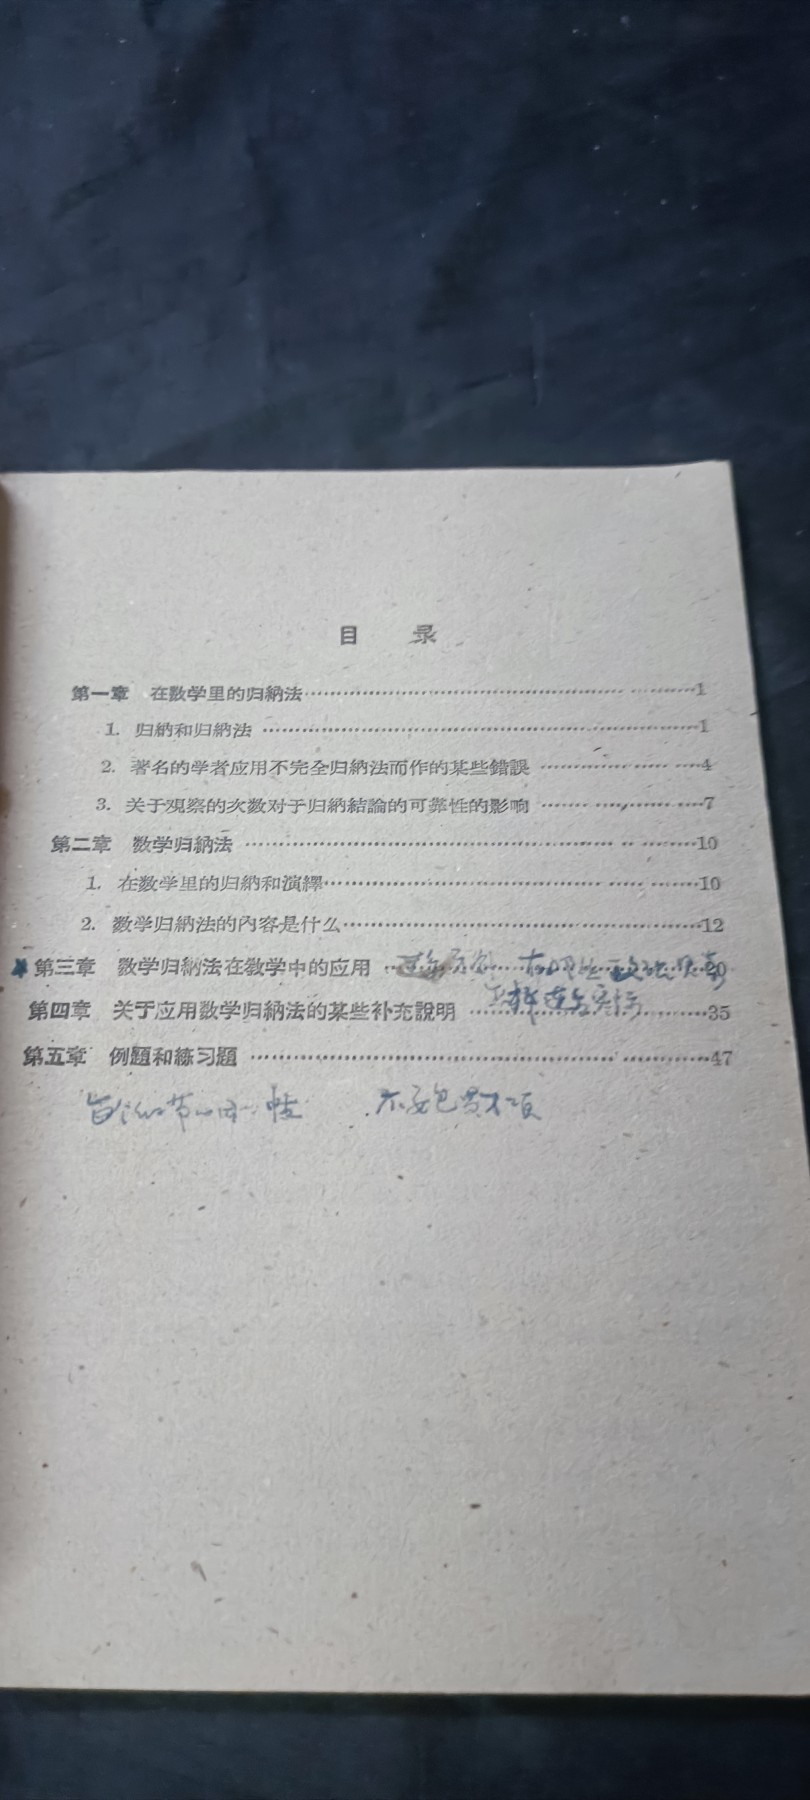 目 录
第一章 在数学里的归納法……1
1. 归納和归納法……1
2. 著名的学者应用不完全归納法而作的某些錯誤……4
3. 关于观察的次数对于归納結論的可靠性的影响……7
第二章 数学归納法……10
1. 在数学里的归納和演繹……10
2. 数学归納法的內容是什么……12
第三章 数学归納法在数学中的应用……20
第四章 关于应用数学归納法的某些补充說明……35
第五章 例題和練习題……47